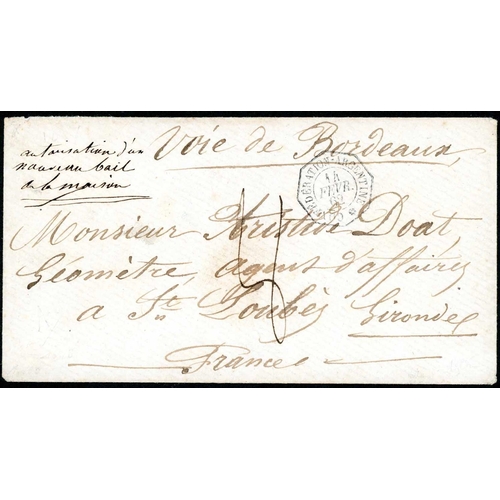 Voie de Bordeaux
autorisation d'un
nouveau bail
de la maison
CONFÉDÉRATION-ARGENTINE
14
FÉVR.
Monsieur Aristide Doat
Géomètre, agent d'affaires
a St. Loubès Gironde
France